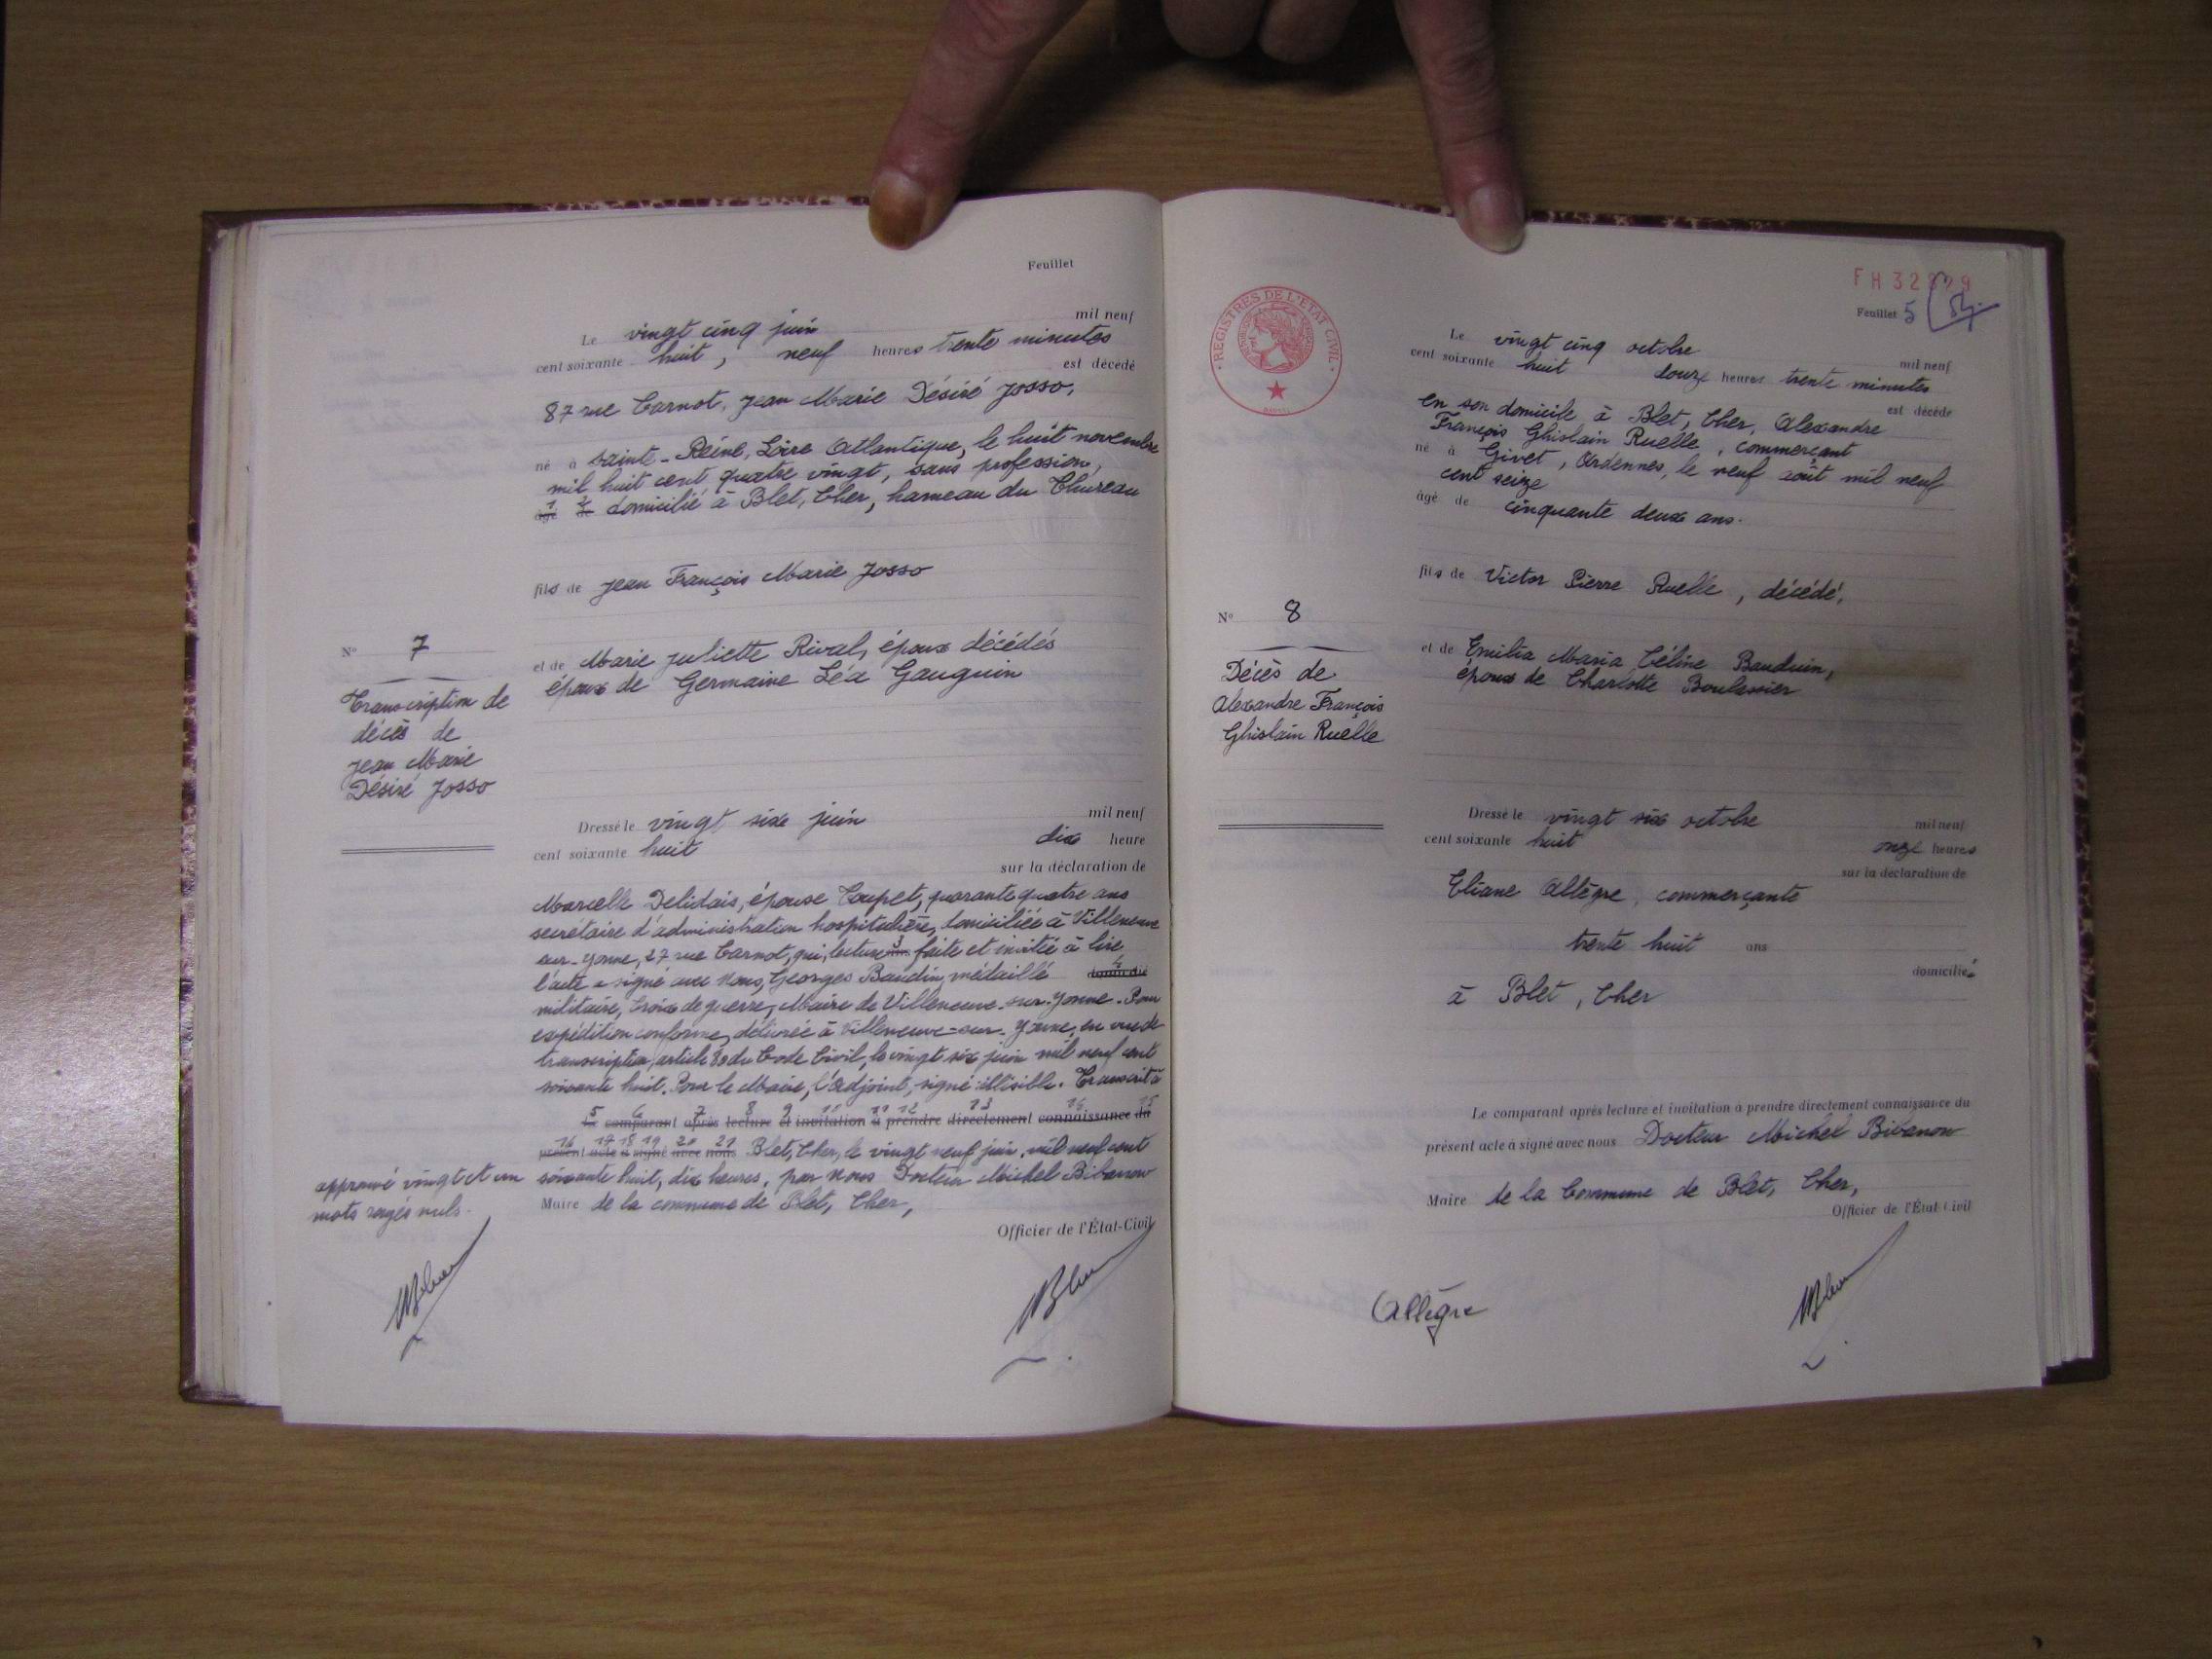 Feuillet
Le vingt cinq juin mil neuf
cent soixante huit, neuf heures trente minutes
est décédé
87 rue Carnot, Jean Marie Désiré Josso,
né à Sainte-Reine, Loire Atlantique, le huit novembre
mil huit cent quatre vingt, sans profession,
âgé 1 de 2 domicilié à Blet, Cher, hameau du Thureau
fils de Jean François Marie Josso
N° 7
et de Marie Juliette Rival, époux décédés
époux de Germaine Léa Gauguin
Transcription de
décès de
Jean Marie
Désiré Josso
Dressé le vingt six juin mil neuf
cent soixante huit dix heure
sur la déclaration de
Marcelle Delidais, épouse Coupet, quarante quatre ans
secrétaire d'administration hospitalière, domiciliée à Villeneuve
sur-Yonne, 27 rue Carnot, qui, lecture ans 3 faite et invitée à lire
l'acte a signé avec Nous, Georges Baudin, médaillé domicilié 4
militaire, Croix de guerre, Maire de Villeneuve-sur-Yonne. Pour
expédition conforme, délivrée à Villeneuve-sur-Yonne, en vue de
transcription, article 80 du Code Civil, le vingt six juin mil neuf cent
soixante huit. Pour le Maire, l'adjoint, signé: illisible. Transcrit à
5 6 7 8 9 10 11 12 13 14 15
Le comparant après lecture et invitation à prendre directement connaissance du
16 17 18 19 20 21
présent acte à signé avec nous Blet, Cher, le vingt neuf juin, mil neuf cent
soixante huit, dix heures, par Nous Docteur Michel Bibanow
Maire de la commune de Blet, Cher,
Officier de l'État-Civil
approuvé vingt et un
mots rayés nuls.
REGISTRES DE L'ÉTAT CIVIL
Feuillet 5
Le vingt cinq octobre mil neuf
cent soixante huit douze heures trente minutes
est décédé
en son domicile à Blet, Cher, Alexandre
François Ghislain Ruelle, commerçant
né à Givet, Ardennes, le neuf août mil neuf
cent seize
âgé de cinquante deux ans.
fils de Victor Pierre Ruelle, décédé,
N° 8
et de Emilia Maria Céline Bauduin,
époux de Charlotte Boulassier
Décès de
Alexandre François
Ghislain Ruelle
Dressé le vingt six octobre mil neuf
cent soixante huit onze heures
sur la déclaration de
Eliane Allègre, commerçante
trente huit ans
domiciliée
à Blet, Cher
Le comparant après lecture et invitation à prendre directement connaissance du
présent acte à signé avec nous Docteur Michel Bibanow
Maire de la Commune de Blet, Cher,
Officier de l'État-Civil
Allègre